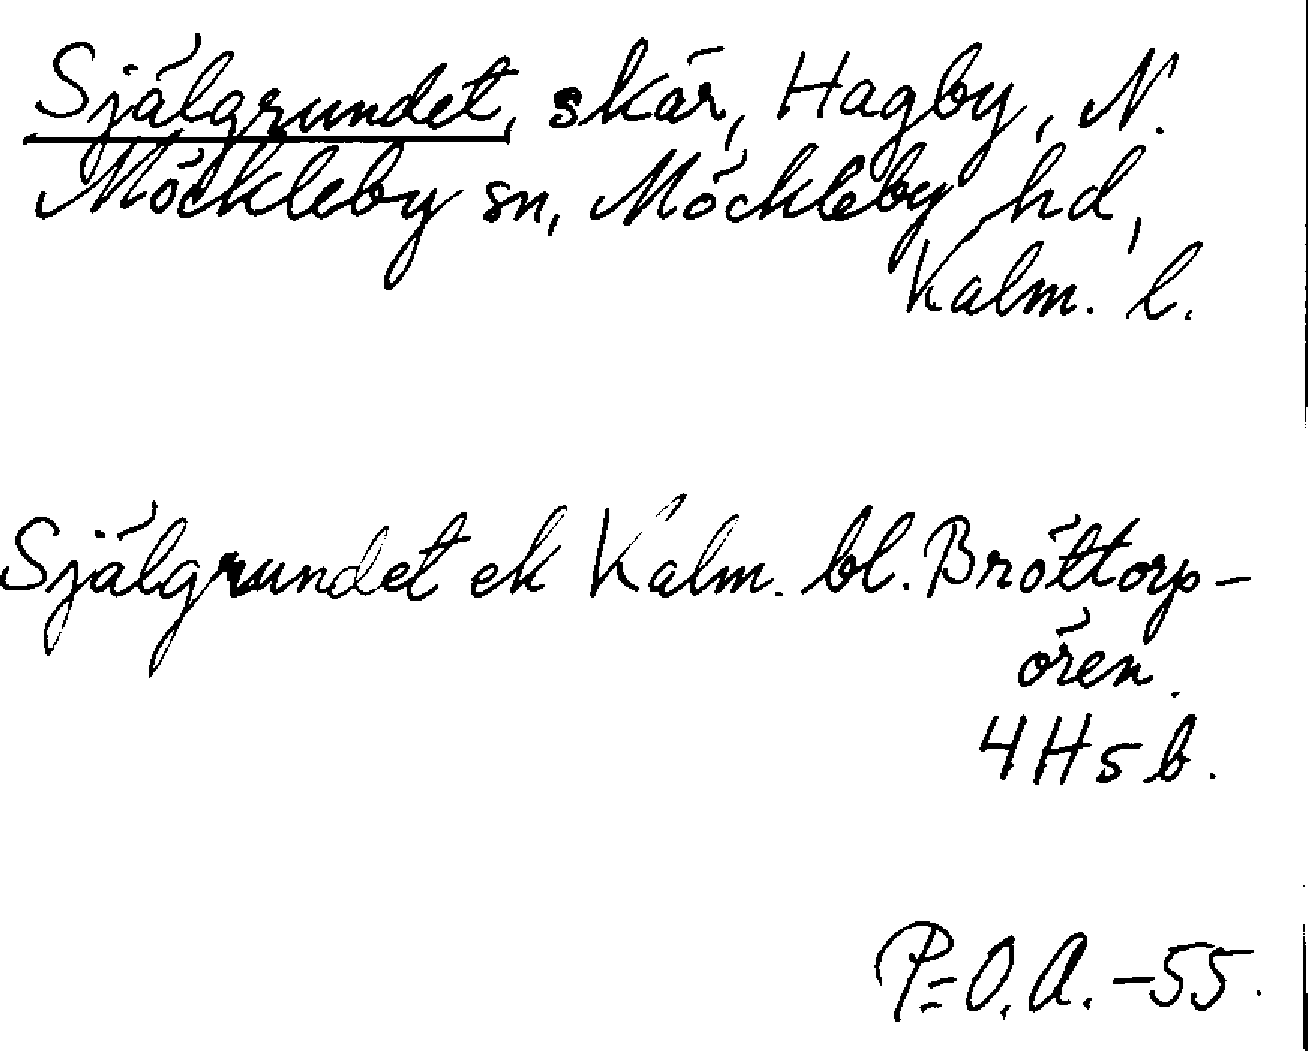 Själgrundet, skär, Hagby, N.
Möckleby sn, Möckleby hd,
Kalm. l.
Själgrundet ek Kalm. bl. Bröttorp-
ören.
4 H 5 b.
P=O.A. -55.